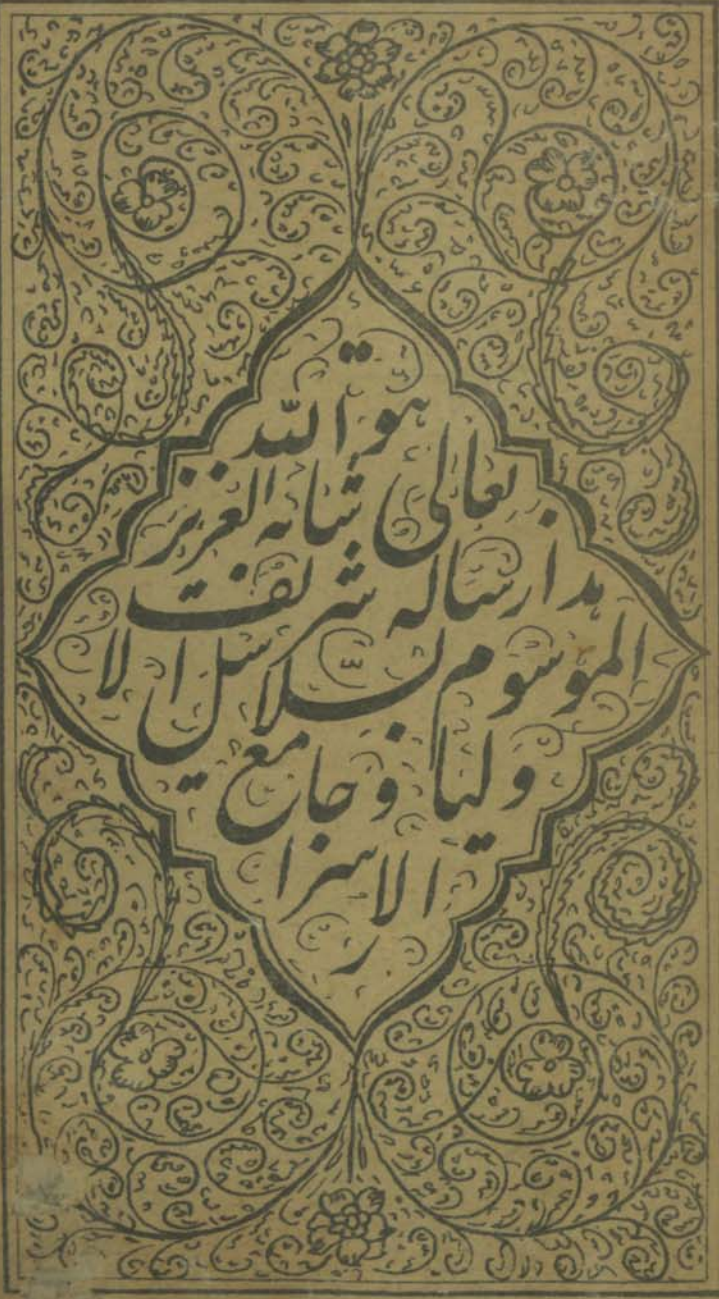 هو الله
تعالى شانه العزيز
هذا رساله شريفت
الموسوم بسلاسل الا
وليا و جامع
الاسرا
ر